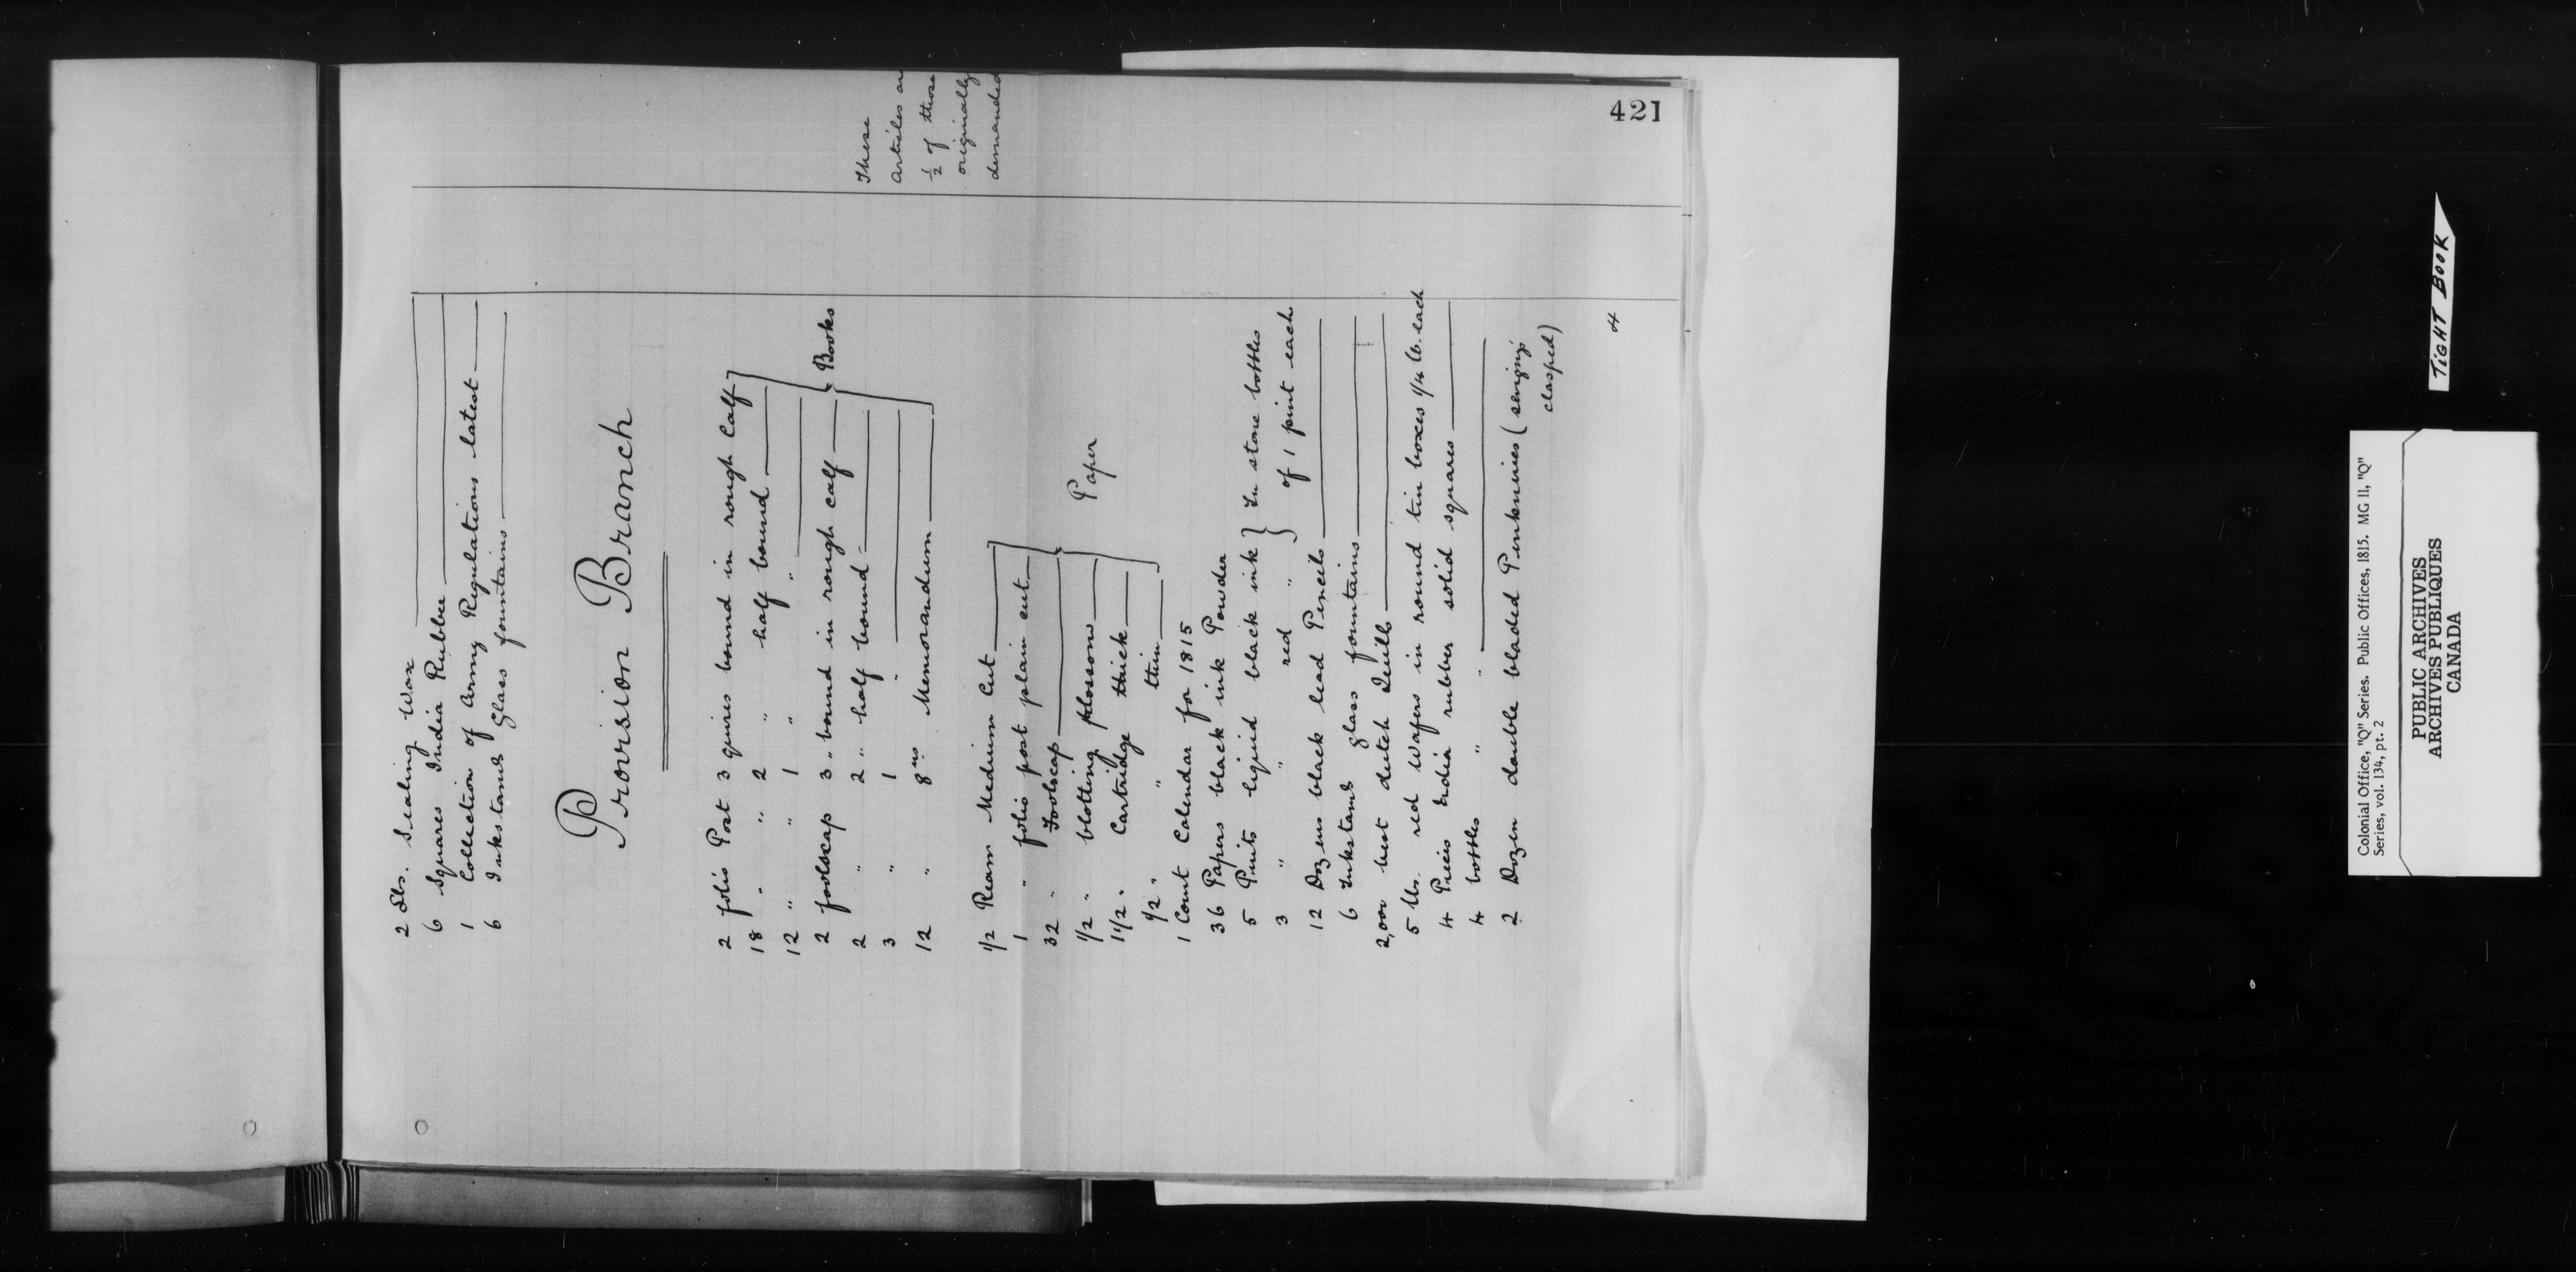 421
2 Lbs. Sealing Wax
6 Squares India Rubber
1 Collection of Army Regulations latest
6 Inkstands glass fountains
Provision Branch
2 folio Post 3 quires bound in rough Calf
18 " " 2 " half bound
12 " " 1 " "
2 foolscap 3 " bound in rough calf
2 " 2 " half bound
3 " 1 "
12 " 8vos Memorandum
} Books
These
articles are
½ of those
originally
demanded
1/2 Ream Medium Cut
1 " folio post plain cut
32 " Foolscap
1/2 " blotting
1 1/2 " Cartridge thick
1/2 " " thin
Paper
1 Court Calendar for 1815
36 Papers black ink Powder
5 Pints liquid black ink } In stone bottles
3 " " red " } of 1 pint each
12 Dozens black lead Pencils
6 Inkstands glass fountains
2,000 best dutch Quills
5 lbs. red Wafers in round tin boxes 1/4 lb. each
4 Pieces India rubber solid squares
4 bottles " "
2 Dozen double bladed Penknives (
clasped)
4
TIGHT BOOK
Colonial Office, "Q" Series. Public Offices, 1815. MG 11, "Q"
Series, vol. 134, pt. 2
PUBLIC ARCHIVES
ARCHIVES PUBLIQUES
CANADA